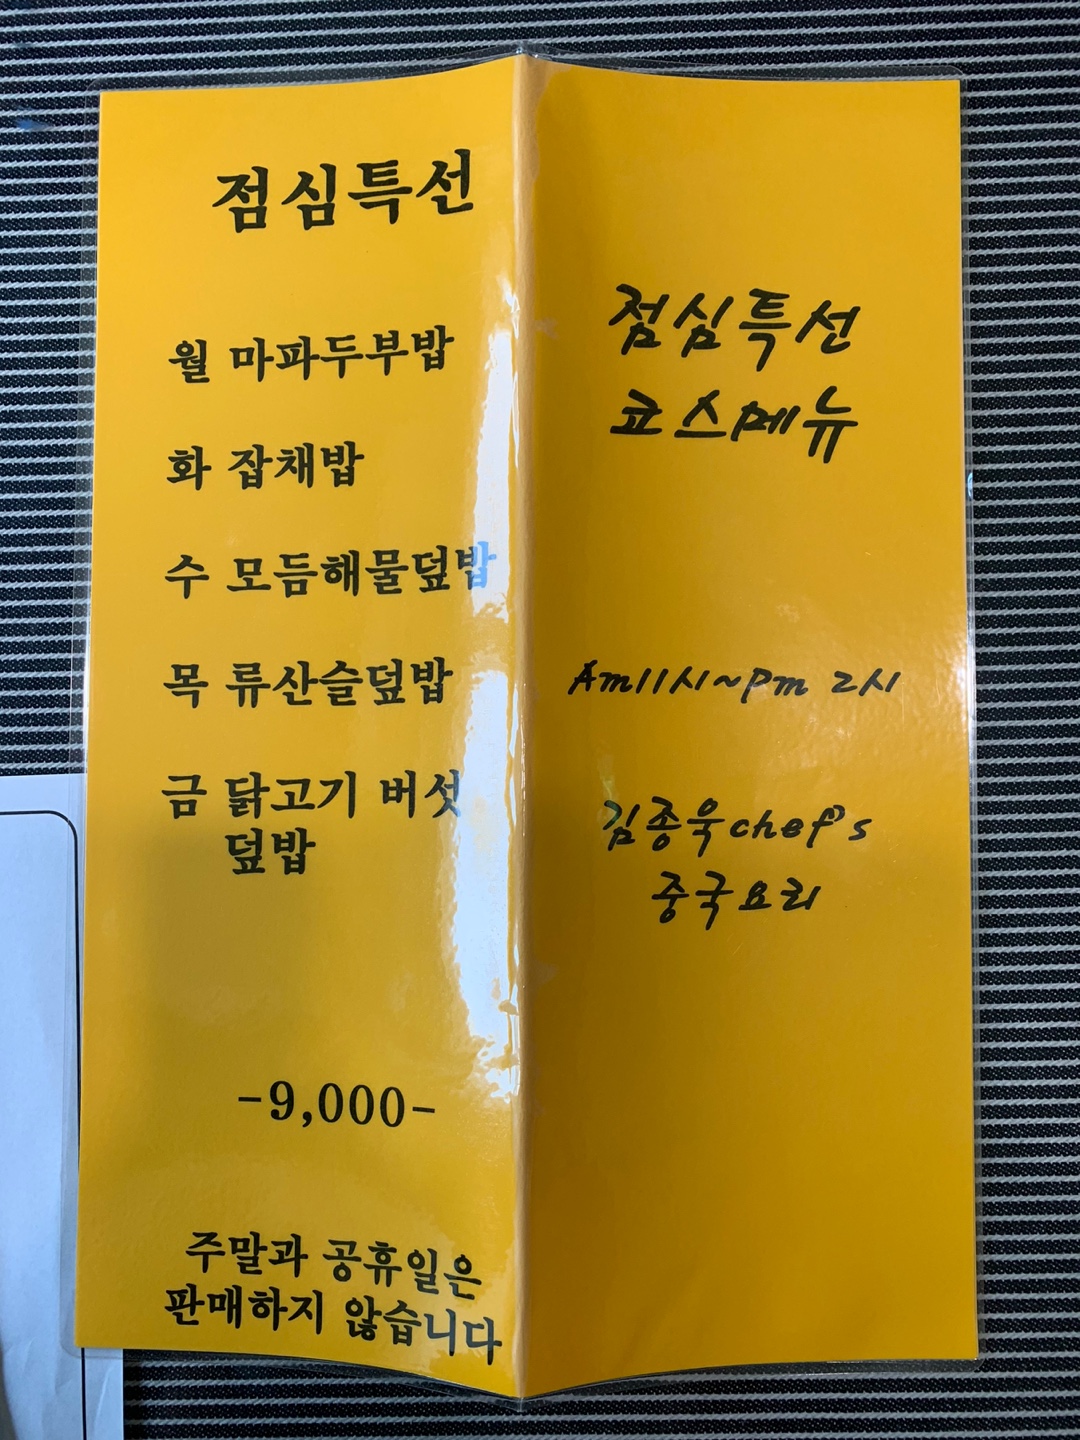 점심특선
월 마파두부밥
화 잡채밥
수 모듬해물덮밥
목 류산슬덮밥
금 닭고기 버섯
덮밥
-9,000-
주말과 공휴일은
판매하지 않습니다
점심특선
코스메뉴
Am11시~Pm 2시
김종욱chef's
중국요리